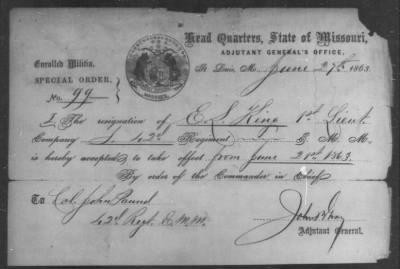 Head Quarters, State of Missouri,
ADJUTANT GENERAL'S OFFICE,
Enrolled Militia.
St Louis, Mo. June 27th 1863
SPECIAL ORDER,
No. 99
I. The resignation of E. S. King 1st Lieut
Company I. 42d Regiment E. M. M.
is hereby accepted to take effect from June 21st 1863.
By order of the Commander in Chief
To Col. John Pound
42d Regt. E. M. M.
Adjutant General.